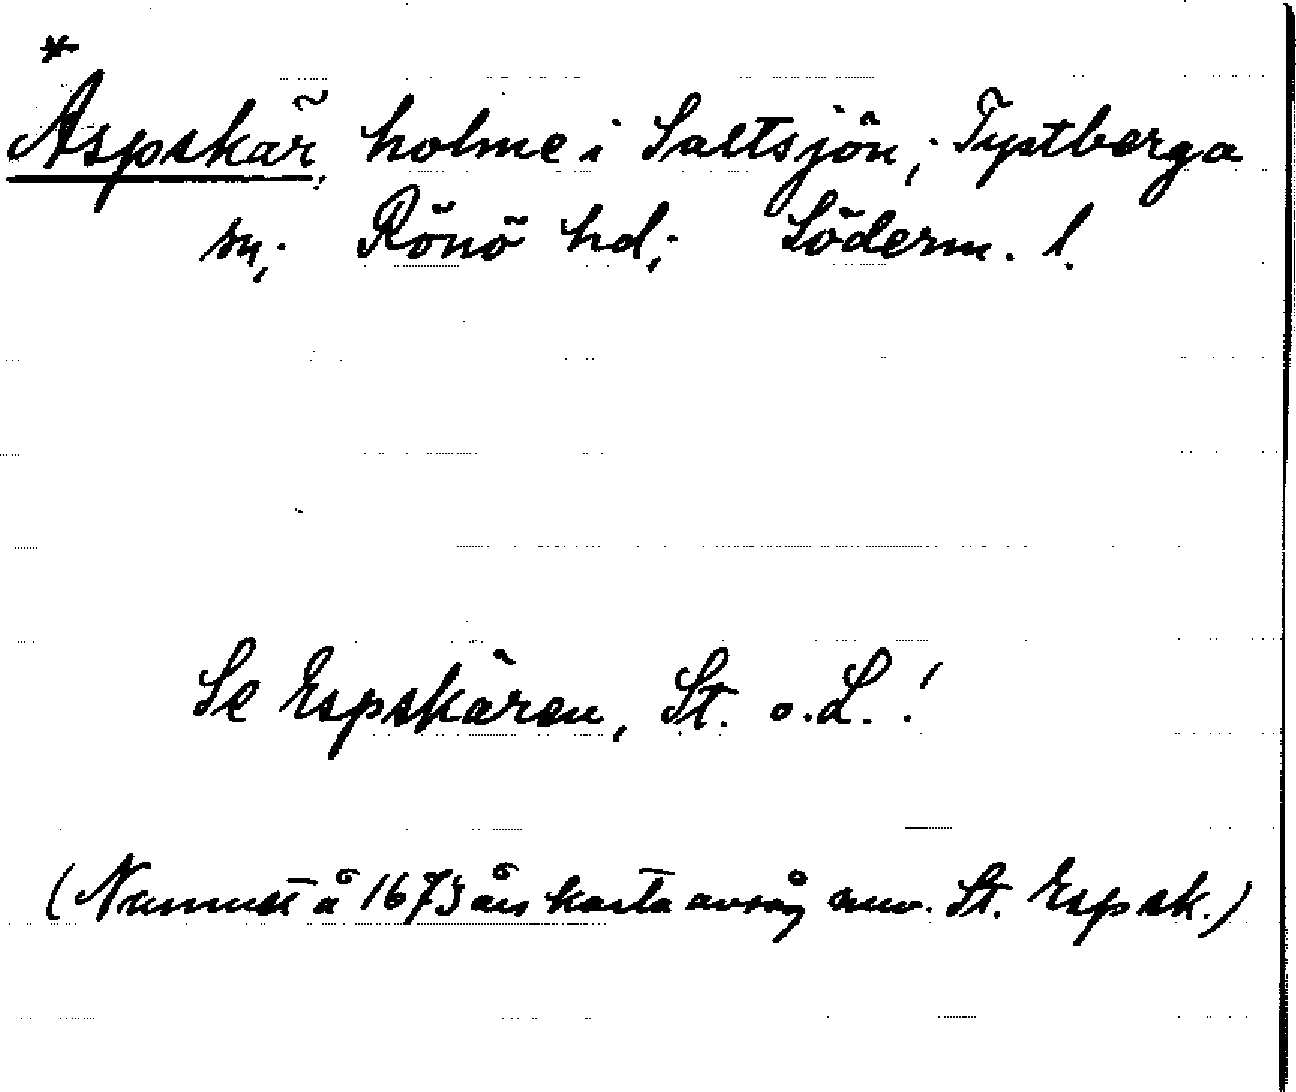 *
Aspskär, holme i Saltsjön; Tystberga
sn; Rönö hd; Söderm. l.
Se Espskären, St. o. L.!
(Namnet å 1673 års karta avsåg nuv. St. Espsk.)